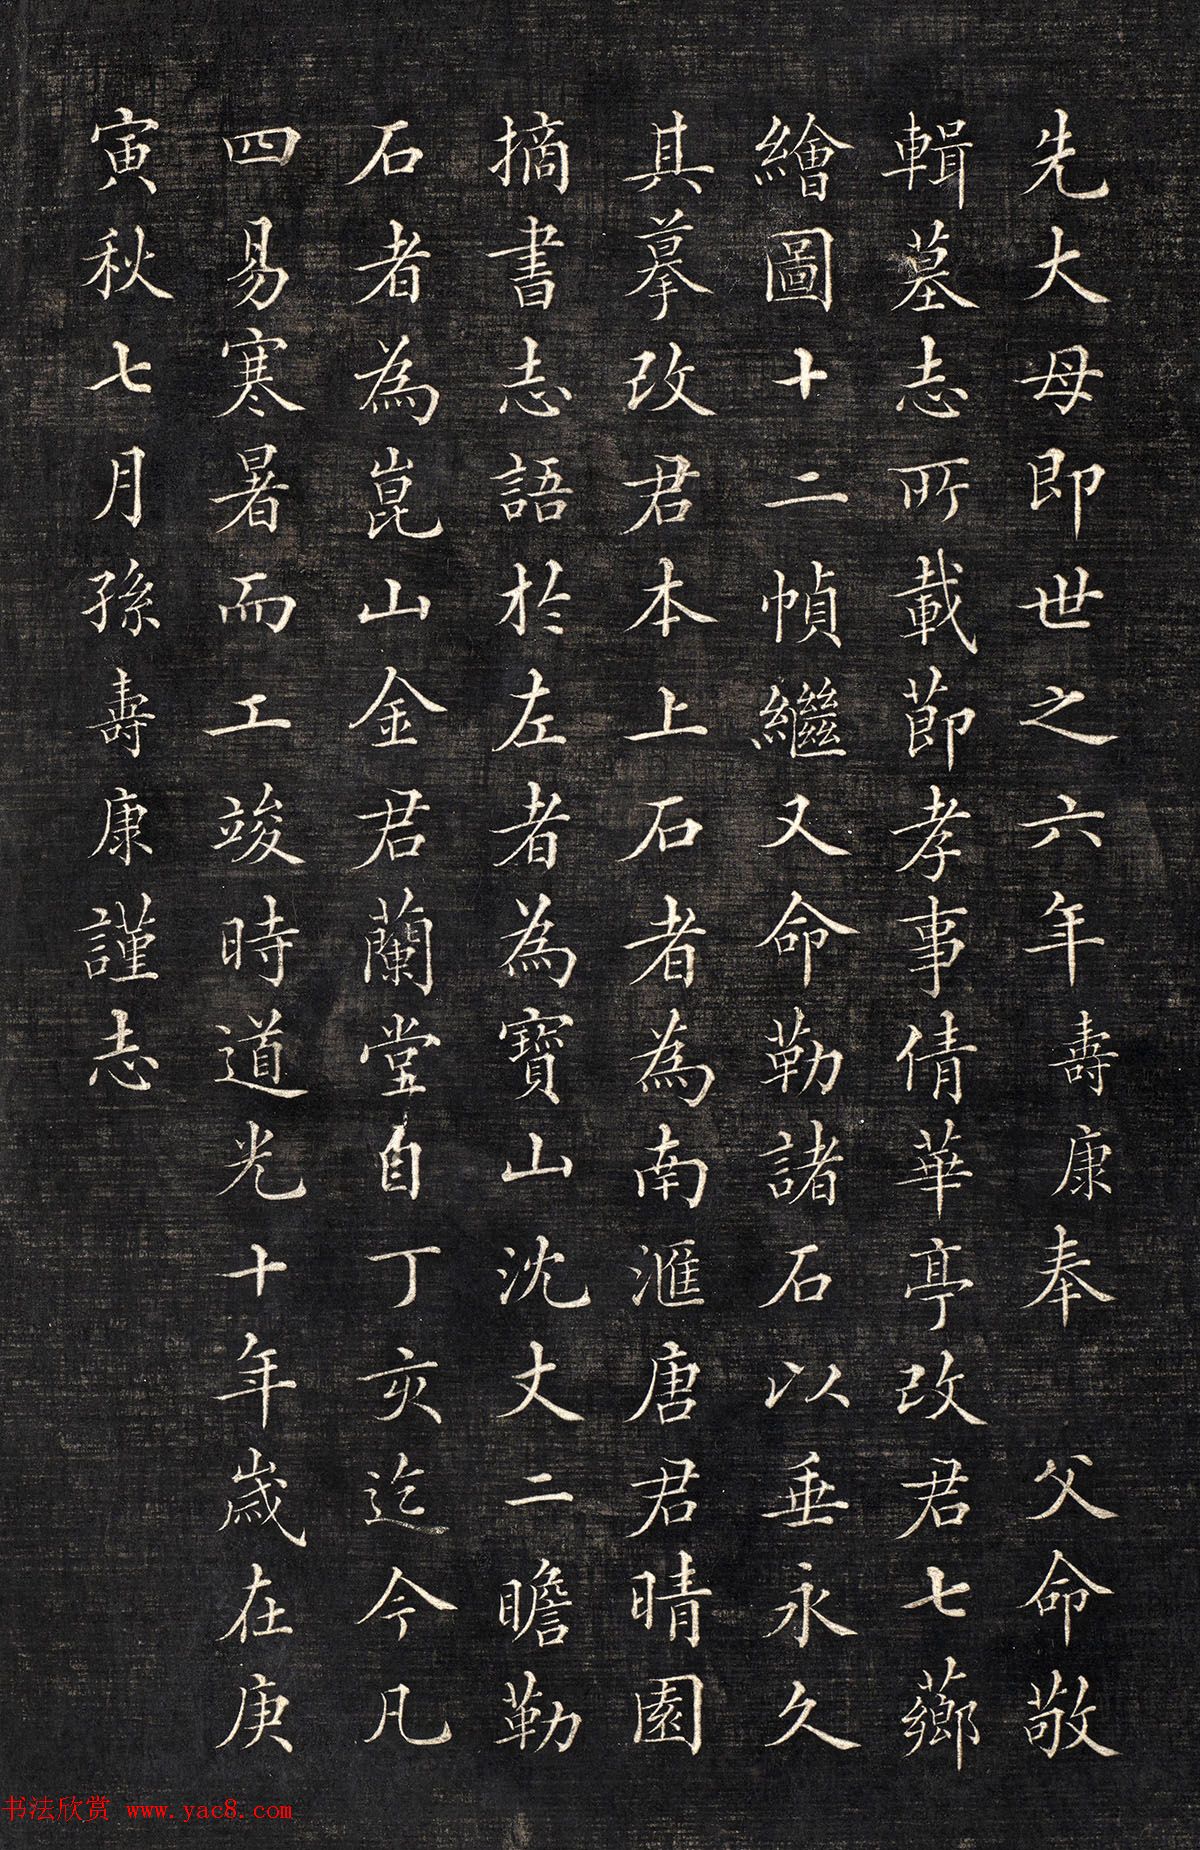 先大母即世之六年壽康奉　父命敬
輯墓志所載節孝事倩華亭改君七薌
繪圖十二幀繼又命勒諸石以垂永久
其摹改君本上石者為南滙唐君晴園
摘書志語於左者為寶山沈丈二瞻勒
石者為崑山金君蘭堂自丁亥迄今凡
四易寒暑而工竣時道光十年歲在庚
寅秋七月孫壽康謹志
书法欣赏 www.yac8.com